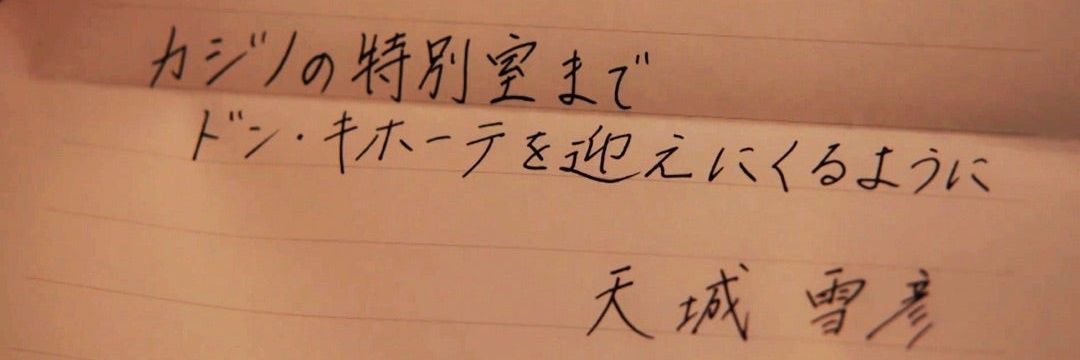 カジノの特別室まで
ドン・キホーテを迎えにくるように
天城 雪彦